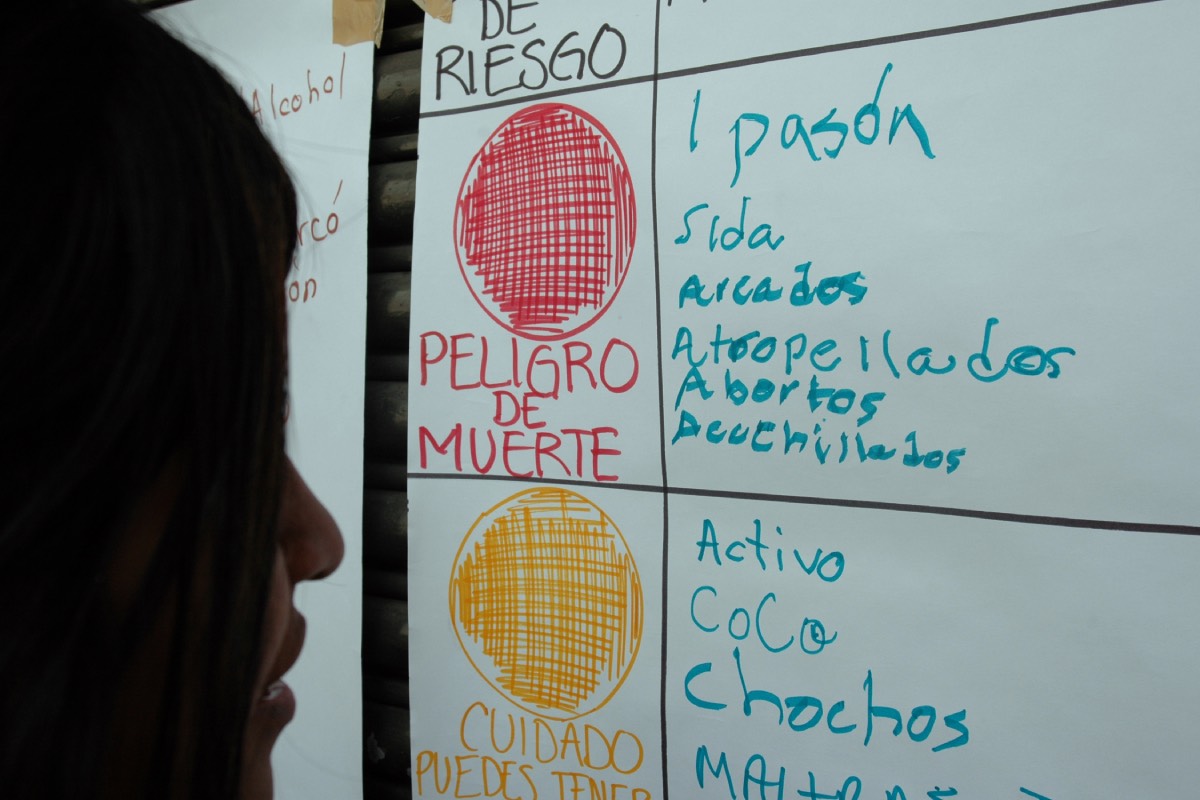 Alcohol
DE
RIESGO
1 pasón
Sida
Arcados
Atropellados
Abortos
Acuchillados
PELIGRO
DE
MUERTE
Activo
CoCa
Chochos
CUIDADO
PUEDES TENER